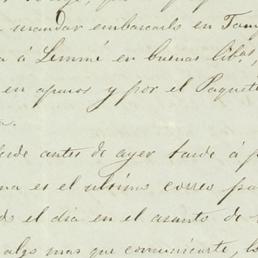 mandar embarcarlo en Tam
a á Lemmé en buenas lib.as,
en apuros y por el Paquete
a.
desde antes de ayer tarde á p
na es el ultimo correo pa
do el dia en el asunto de
algo mas que comunicarte, lo